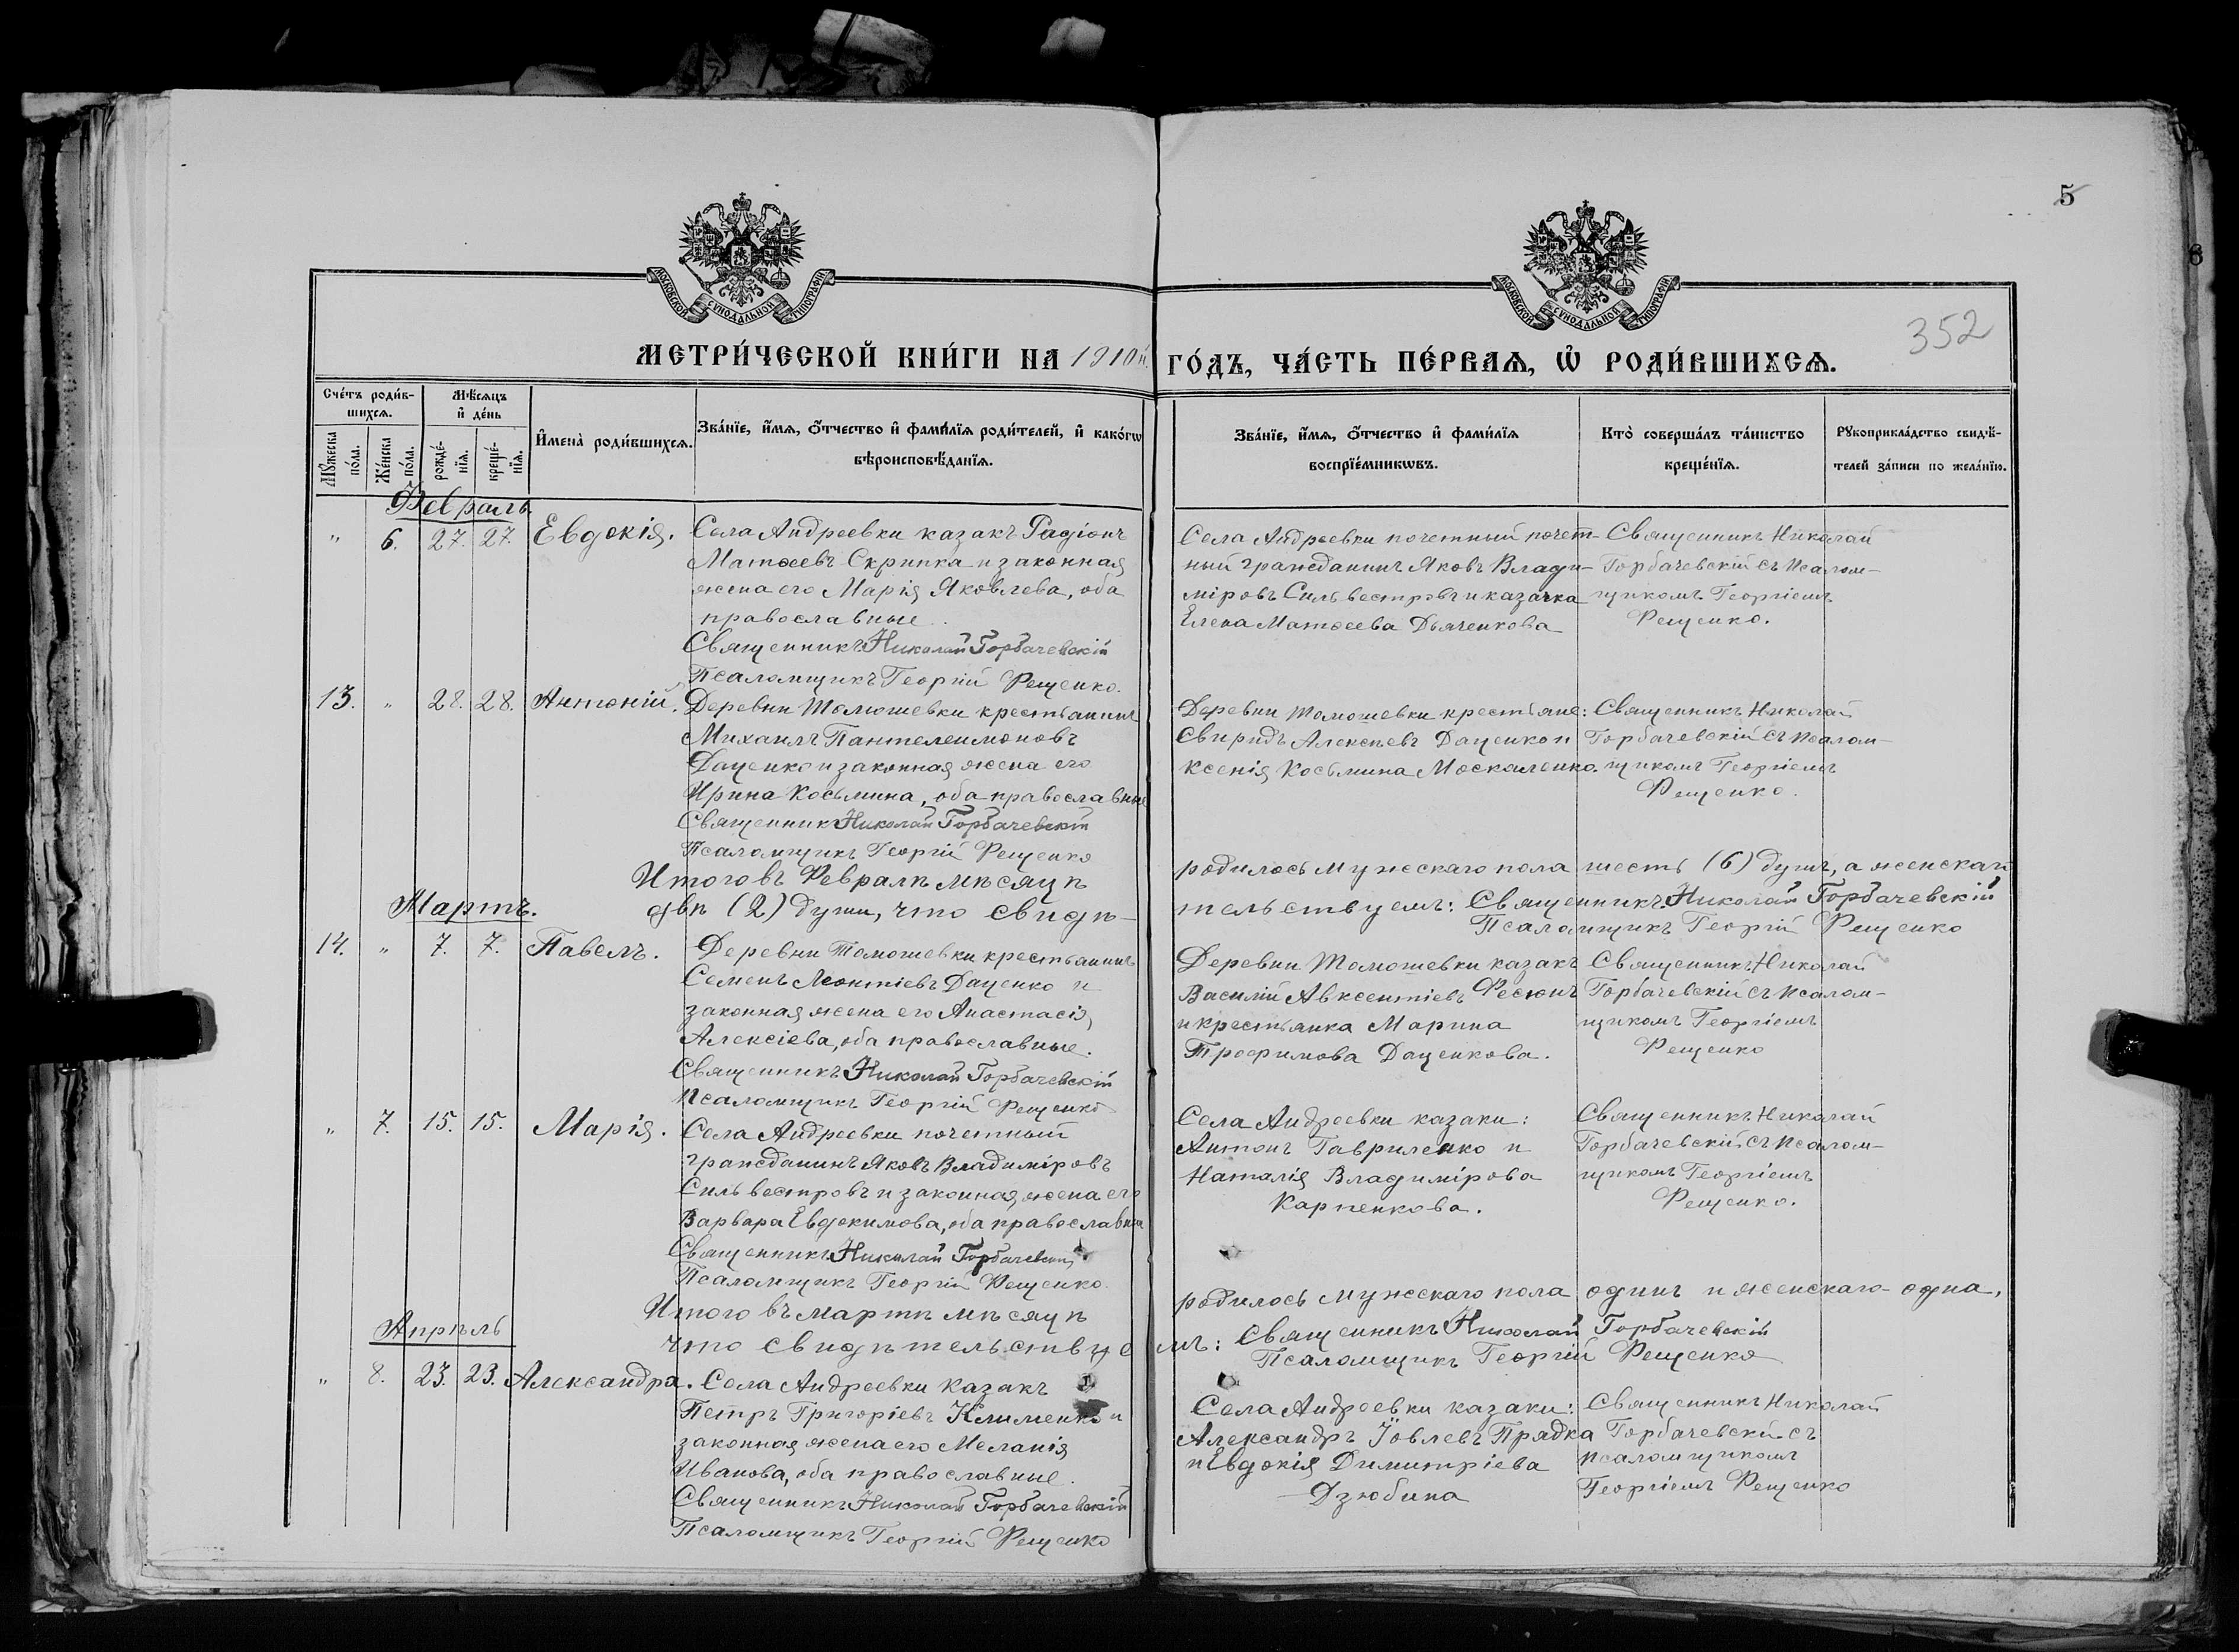 5
6
352
МОСКОВСКОЙ СѴНОДАЛЬНОЙ ТИПОГРАФІИ
МОСКОВСКОЙ СѴНОДАЛЬНОЙ ТИПОГРАФІИ
МЕТРИ́ЧЕСКОЙ КНИ́ГИ НА 1910й ГО́ДЪ, ЧА́СТЬ ПЕ́РВАѦ, Ѡ҆ РОДИ́ВШИХСѦ.
Сче́тъ роди́в-
шихсѧ.
Мꙋжеска по́ла.
Же́нска по́ла.
Мѣ́сѧцъ
и҆ де́нь
рожде́-
нїѧ.
креще́-
нїѧ.
И҆мена̀ роди́вшихсѧ.
Зва́нїе, и҆́мѧ, ѻ҆́тчество и҆ фами́лїѧ роди́телей, и҆ како́гѡ
вѣроисповѣ́данїѧ.
Зва́нїе, и҆́мѧ, ѻ҆́тчество и҆ фами́лїѧ
воспрїе́мникѡвъ.
Кто̀ соверша́лъ та́инство
креще́нїѧ.
Рꙋкоприкла́дство свидѣ́-
телей за́писи по жела́нїю.
Февраль.
" 6. 27. 27. Евдокія.
Села Андреевки казакъ Радіонъ
Матѳеевъ Скрипка и законная
жена его Марія Яковлева, оба
православные.
Священникъ Николай Горбачевскій
Псаломщикъ Георгій Рещенко.
Села Андреевки почетный почет-
ный гражданинъ Яковъ Влади-
міровъ Сильвестровъ и казачка
Елена Матѳеева Дьяченкова
Священникъ Николай
Горбачевскій съ псалом-
щикомъ Георгіемъ
Рещенко.
13. " 28. 28. Антоній.
Деревни Томошевки крестьянинъ
Михаилъ Пантелеимоновъ
Даценко и законная жена его
Ирина Косьмина, оба православные
Священникъ Николай Горбачевскій
Псаломщикъ Георгій Рещенко
Деревни Томошевки крестьяне:
Свиридъ Алексѣевъ Даценко и
Ксенія Косьмина Москаленко.
Священникъ Николай
Горбачевскій съ псалом-
щикомъ Георгіемъ
Рещенко.
Итого въ Февралѣ мѣсяцѣ родилось мужескаго пола шесть (6) душъ, а женскаго
двѣ (2) души, что свидѣ-тельствуемъ: Священникъ Николай Горбачевскій
Псаломщикъ Георгій Рещенко
Мартъ.
14. " 7. 7. Павелъ.
Деревни Томошевки крестьянинъ
Семенъ Леонтіевъ Даценко и
законная жена его Анастасія
Алексіева, оба православные.
Священникъ Николай Горбачевскій
Псаломщикъ Георгій Рещенко
Деревни Томошевки казакъ
Василій Авксентіевъ Фесюнъ
и крестьянка Марина
Трофимова Даценкова.
Священникъ Николай
Горбачевскій съ псалом-
щикомъ Георгіемъ
Рещенко
" 7. 15. 15. Марія.
Села Андреевки почетный
гражданинъ Яковъ Владиміровъ
Сильвестровъ и законная жена его
Варвара Евдокимова, оба православные
Священникъ Николай Горбачевскій
Псаломщикъ Георгій Рещенко.
Села Андреевки казаки:
Антонъ Гавриленко и
Наталія Владимірова
Карпенкова.
Священникъ Николай
Горбачевскій съ псалом-
щикомъ Георгіемъ
Рещенко.
Итого въ мартѣ мѣсяцѣ родилось мужескаго пола одинъ и женскаго-одна,
что свидѣтельствуемъ: Священникъ Николай Горбачевскій
Псаломщикъ Георгій Рещенко
Апрѣль
" 8. 23. 23. Александра.
Села Андреевки казакъ
Петръ Григоріевъ Клименко и
законная жена его Меланія
Иванова, оба православные.
Священникъ Николай Горбачевскій
Псаломщикъ Георгій Рещенко
Села Андреевки казаки:
Александръ Іовлевъ Прядка
и Евдокія Димитріева
Дзюбина
Священникъ Николай
Горбачевскій съ
псаломщикомъ
Георгіемъ Рещенко